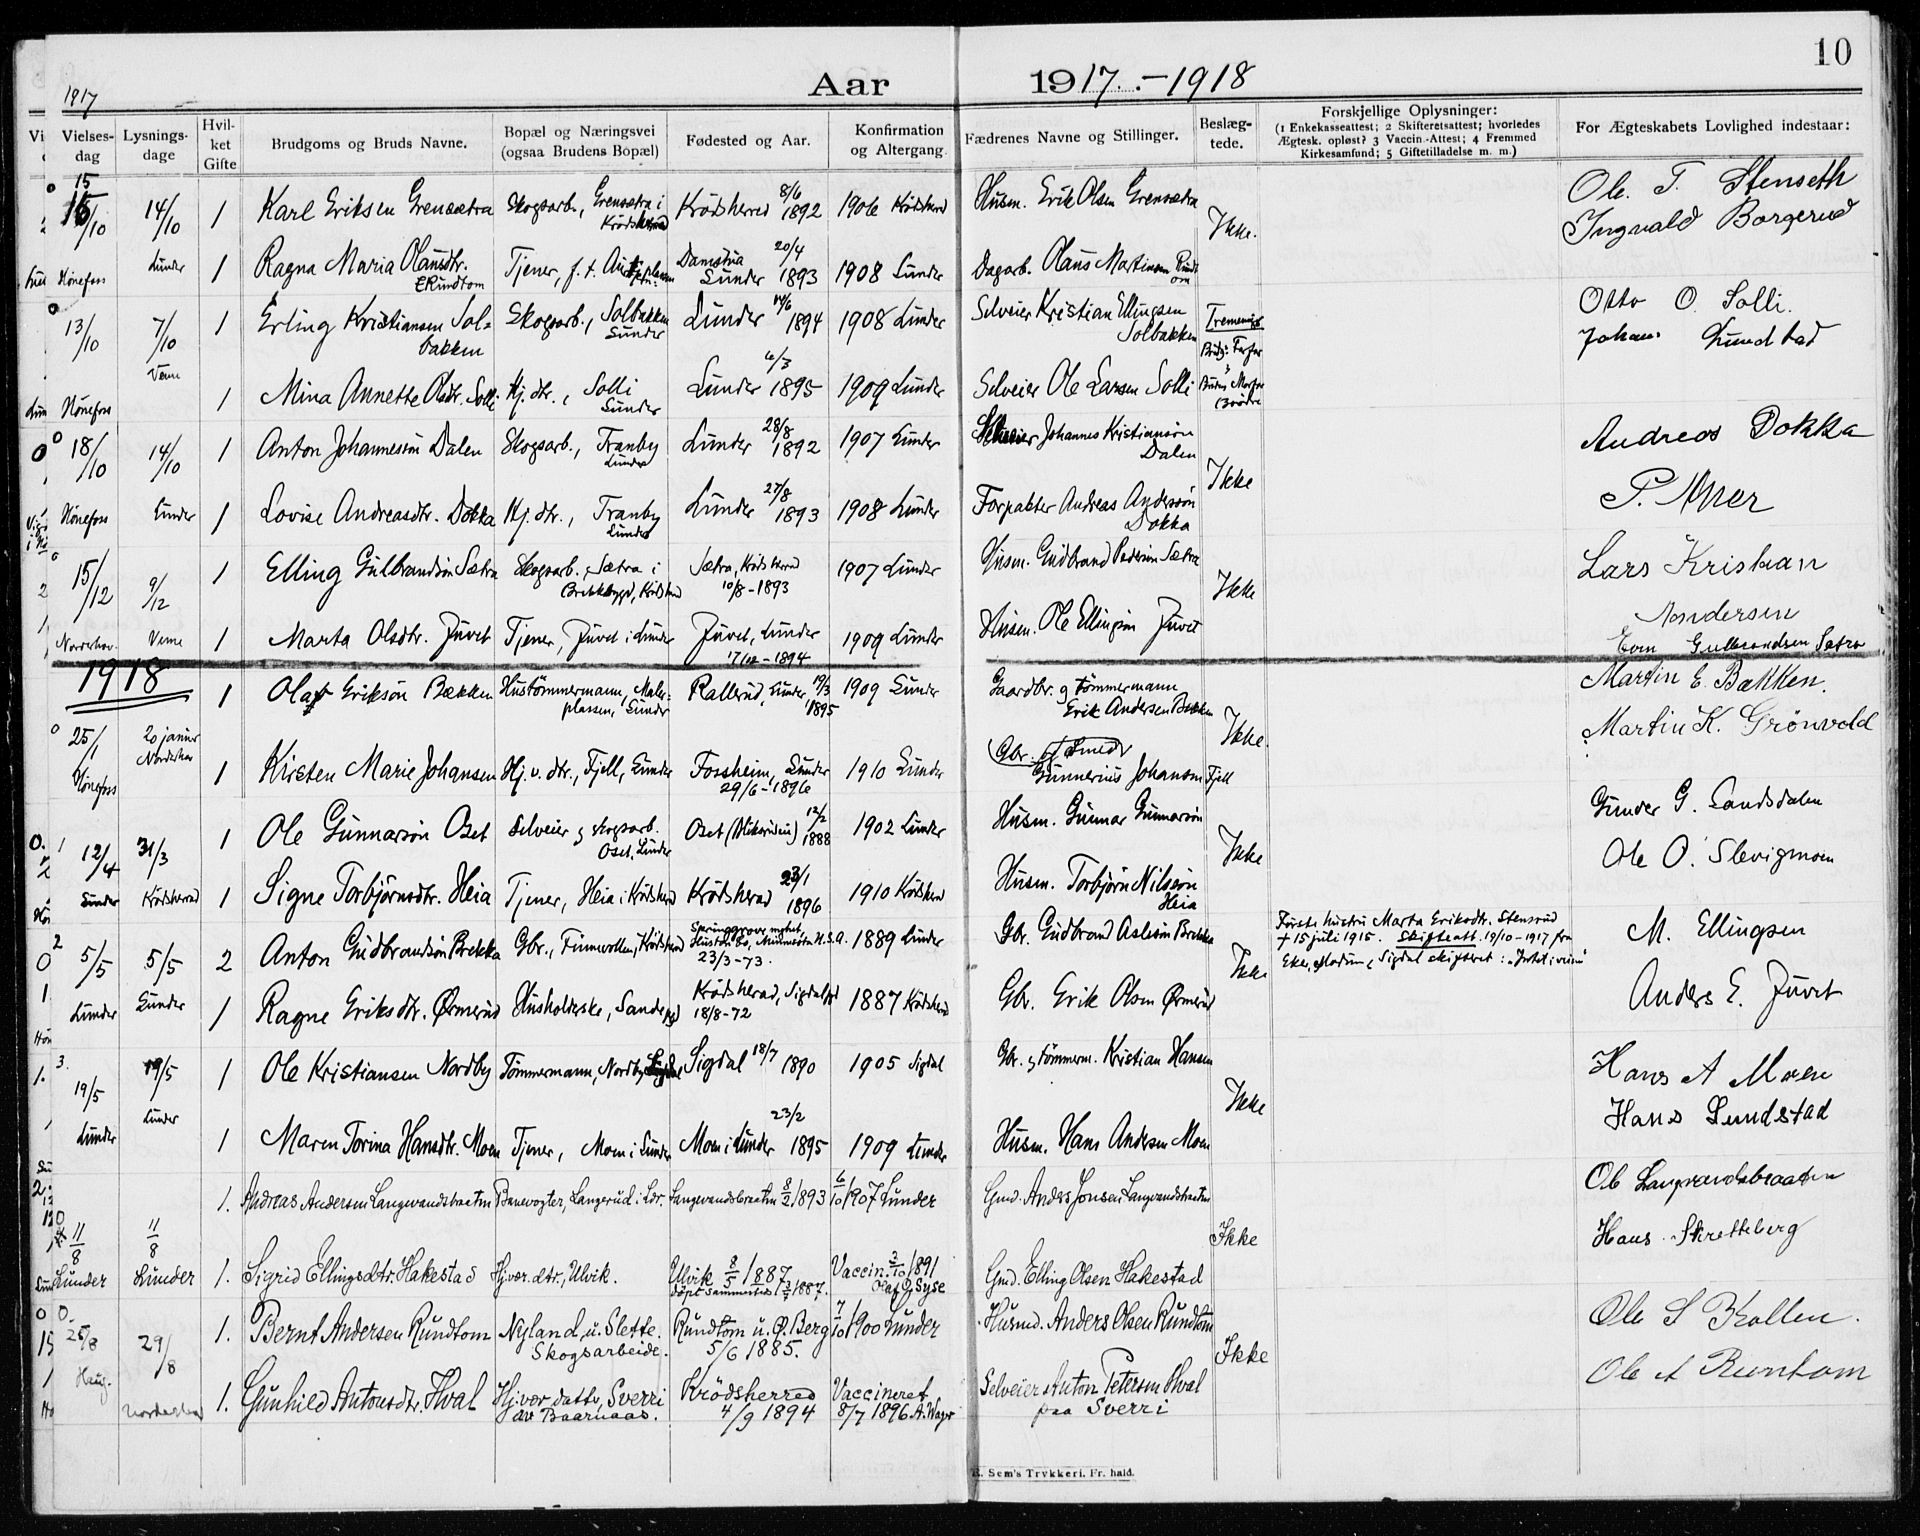 10
Aar 1917.-1918
1917
Vielses-dag
Lysnings-dage
Hvil-ket Gifte
Brudgoms og Bruds Navne.
Bopæl og Næringsvei (ogsaa Brudens Bopæl)
Fødested og Aar.
Konfirmation og Altergang.
Fædrenes Navne og Stillinger.
Beslæg-tede.
Forskjellige Oplysninger: (1 Enkekasseattest; 2 Skifteretsattest; hvorledes Ægtesk. opløst? 3 Vaccin.-Attest; 4 Fremmed Kirkesamfund; 5 Giftetilladelse m. m.)
For Ægteskabets Lovlighed indestaar:
15/10 14/10 1 Karl Eriksen Grensætra Skogsarb., Grensætra i Krødsherred Krødsherred 8/6 1892 1906 Krødsherred Husm. Erik Olsen Grensætra Ikke. Ole T. Stenseth
Ingvald Borgerud
Hønefoss Lunder 1 Ragna Maria Olausdtr. Rundtom Tjener, f. t. Lunder 20/4 1893 1908 Lunder Dagarb. Olaus Martinsen Rundtom
13/10 7/10 1 Erling Kristiansen Solbakken Skogsarb., Solbakken Lunder Lunder 14/6 1894 1908 Lunder Selveier Kristian Ellingsen Solbakken Tremenige Otto O. Solli.
Johan Lundstad
Hønefoss Veme 1 Mina Annette Olsdtr. Solli Hj. dtr., Solli Lunder Lunder 6/3 1895 1909 Lunder Selveier Ole Larsen Solli
18/10 14/10 1 Anton Johannessøn Dalen Skogsarb., Tranby Lunder Lunder 28/8 1892 1907 Lunder Selveier Johannes Kristiansøn Dalen Ikke Andreas Dokka
Hønefoss Lunder 1 Lovise Andreasdtr. Dokka Hj. dtr., Tranby Lunder Lunder 27/8 1893 1908 Lunder Forpakter Andreas Anderssøn Dokka
15/12 9/12 1 Elling Gulbrandsøn Sætra Skogsarb., Sætra i Krødsherred Sætra, Krødsherred 10/8-1893 1907 Lunder Husm. Gudbrand Pedersøn Sætra Ikke Lars Kristian Andersen
Norderhov. Veme 1 Marta Olsdtr. Juvet Tjener, Juvet i Lunder Juvet, Lunder 17/12-1894 1909 Lunder Husm. Ole Ellingsøn Juvet Even Gulbrandsen Sætra
1918
1 Olaf Eriksøn Bækken Hustømmermann, Malerplassen, Lunder Rallerud, Lunder 19/3 1895 1909 Lunder Gaardbr. og tømmermann Erik Andersen Bækken Ikke. Martin E. Bækken.
25/1 20 januar Norderhov Martin K. Grønvold
Hønefoss 1 Kirsten Marie Johansen Hj. v. dtr., Fjell, Lunder Fossheim, Lunder 29/6-1896 1910 Lunder Gbr. og smed Gunnerius Johansen Fjell
12/4 31/3 1 Ole Gunnarsøn Oset Selveier og skogsarb. Oset, Lunder Oset 12/2 1888 1902 Lunder Husm. Gunnar Gunnarsøn Ikke Gunder G. Sandsdalen
Ole O. Slevigmoen
Lunder Krødsherred 1 Signe Torbjørnsdtr. Heia Tjener, Heia i Krødsherred Krødsherad 23/1 1896 1910 Krødsherad Husm. Torbjørn Nilsen Heia
5/5 5/5 2 Anton Gudbrandsøn Brekka Gbr., Finnerollen, Krødsherad Springgrove Huston Co, Minnesota U.S.A. 23/3-73. 1889 Lunder Gbr. Gudbrand Aslesøn Brekka Ikke Første hustru Marta Eriksdtr. Stensrud
+ 15 juli 1915. Skifteatt. 19/10-1917 fra
Eker, Modum, Sigdal skifteret: "Intet ivein"
M. Ellingsen
Lunder Lunder 1 Ragne Eriksdtr. Ørmerud Husholderske, Sande Krødsherad, Sigdal 18/8-72 1887 Krødsherad Gbr. Erik Olsen Ørmerud Anders E. Juvet
19/5 19/5 1 Ole Kristiansen Nordby Tømmermann, Nordby, Sigdal Sigdal 18/7 1890 1905 Sigdal Gbr. og tømmerm. Kristian Hansen Ikke Hans A Moen
Lunder Lunder 1 Maren Torina Hansdtr. Moen Tjener, Moen i Lunder Moen i Lunder 23/2 1895 1909 Lunder Husm. Hans Andersen Moen Hans Lundstad
11/8 11/8 1. Andreas Andersen Langevandsbraaten Banevogter, Langerud i Ldr. Langevandsbraaten 8/2 1893 6/10 1907 Lunder Gmd. Anders Jonsen Langvandsbraaten Ikke Ole Langvandsbraaten
Hans Skretteberg
Lunder Lunder 1. Sigrid Ellingsdtr. Hakestad Hj.vær. dtr., Ulvik. Ulvik 8/5 1887 døpt sammesteds 1887. Vaccin. 3/10 1891 Olaf Syse Gmd. Elling Olsen Hakestad
25/8 29/8 1. Bernt Andersen Rundtom Nyland, u. Slette. Skogsarbeide. Rundtom u. Ø. Berg 5/6 1885. 7/10 1900 Lunder Husmd. Anders Olsen Rundtom Ikke Ole S Kollen.
Haug. Norderhov 1. Gunhild Antonsdtr. Hval Hj.vær. datter, Sverri av Baarnaas. Krødsherred 4/9 1894 Vaccineret 8/7 1896 A. Wager Selveier Anton Petersen Hval paa Sverri Ole A Runtom
E. Sem's Trykkeri, Fr.hald.